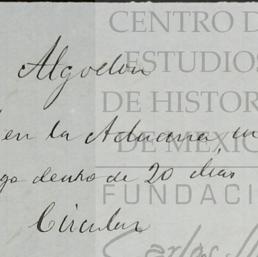 CENTRO D
ESTUDIOS
DE HISTOR
DE MEXIC
FUNDACI
Carlos
Algodon
en la Aduana, un
go dentro de 20 dias
Circular